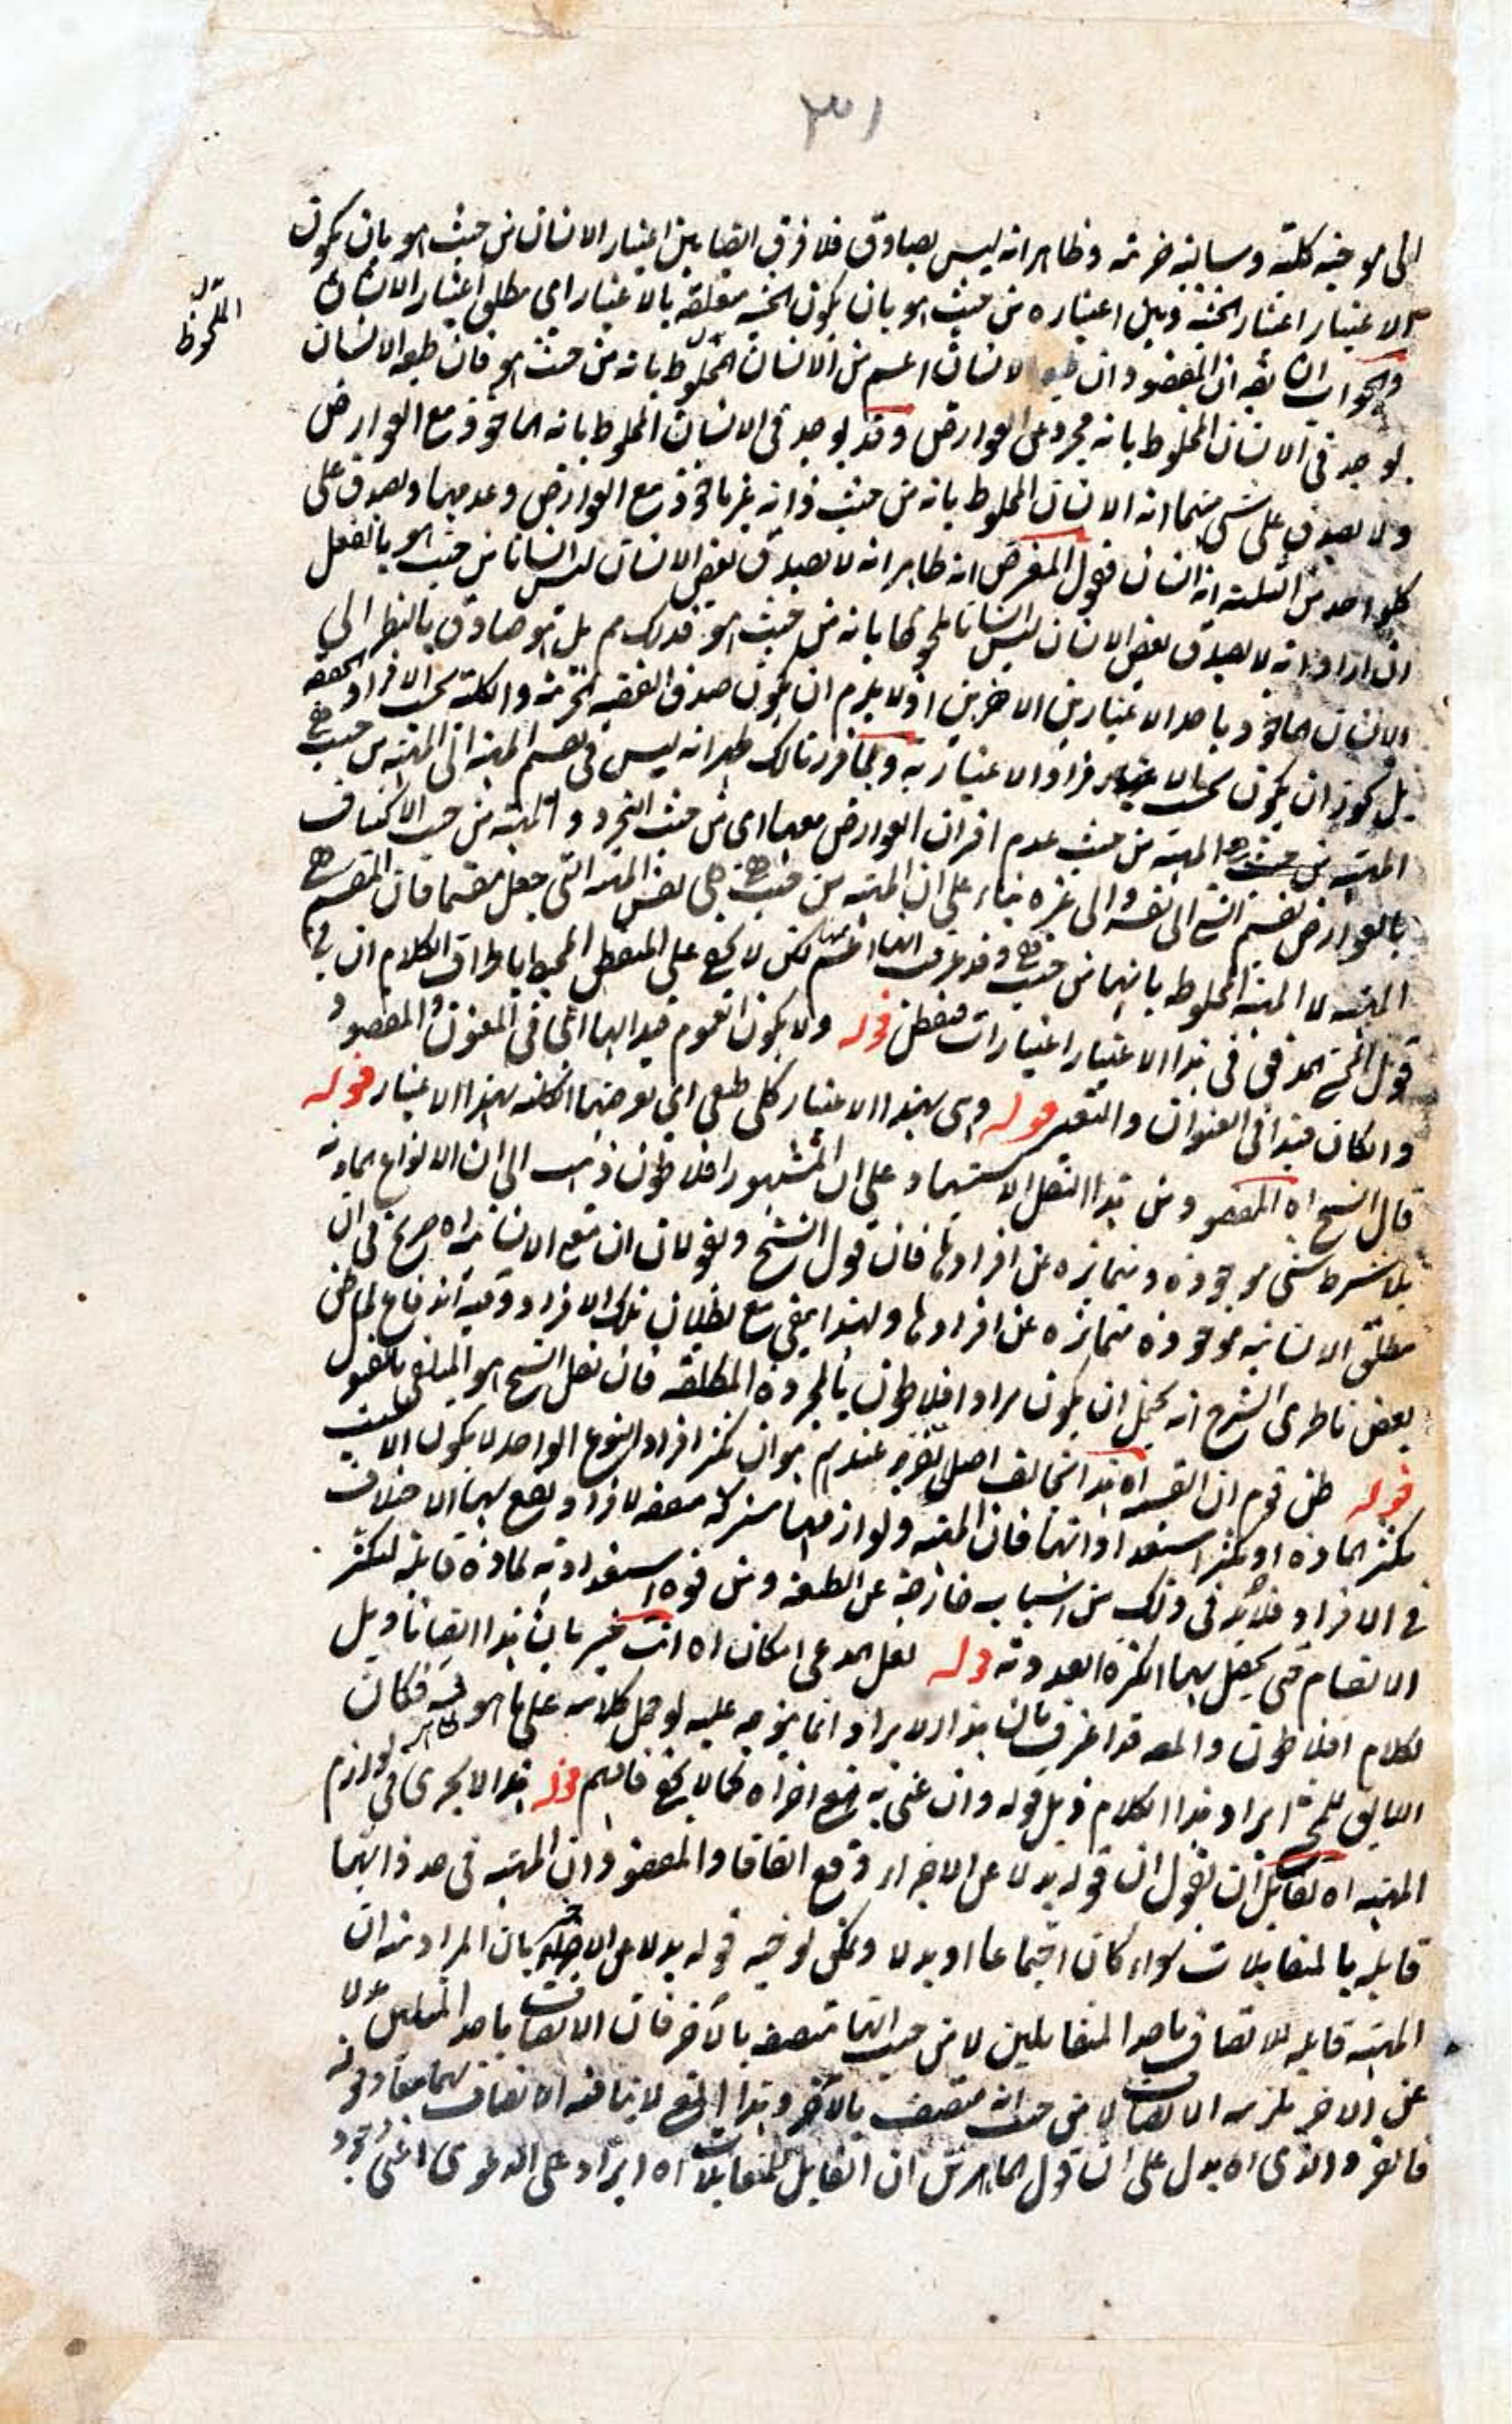 ٣١
الى موجبة كلية وسالبة جزئية وظاهر انه ليس بصادق فلا فرق ايضا بين اعتبار الانسان من حيث هو بان يكون
الاعتبار اعتبار الحيثية وبين اعتباره من حيث هو بان يكون الحيثية متعلقة بالاعتبار اى مطلق اعتبار الانسان
الملحوظ
والجواب ان يقه ان المقصود ان الانسان اعم من الانسان الملحوظ بانه من حيث هو فان طبيعة الانسان
يوجد فى الانسان الملحوظ بانه مجرد عن العوارض وقد يوجد فى الانسان الملحوظ بانه ماخوذ مع العوارض
ولا يصدق على شئ منهما انه الانسان الملحوظ بانه من حيث ذاته غير ماخوذ مع العوارض وعدمها ويصدق على
كل واحد من الثلثة انه انسان فقول المعترض انه ظاهر انه لا يصدق بعض الانسان ليس انسانا من حيث هو بالفعل
ان اراد انه لا يصدق بعض الانسان ليس انسانا ملحوظا بانه من حيث هو فذلك مم بل هو صادق بالنظر الى
الانسان الماخوذ باحد الاعتبارين الاخرين اذ لا يلزم ان يكون صدق القضية الجزئية والكلية بحسب الافراد المحققة
بل يجوز ان يكون بحسب الافراد الاعتبارية وبما قررنا لك ظهر انه ليس فى تقسيم المهية الى المهية من حيث هى
المهية من حيث عدم اقتران العوارض معها اى من حيث التجرد والمهية من حيث الاكتناف
بالعوارض تقسيم الشئ الى نفسه والى غيره بناء على ان المهية من حيث هى هى نفس المهية التى جعل مقسما فان المقسم هى
المهية لا المهية الملحوظة بانها من حيث هى وقد عرفت انها اعم منها لكن لا يخفى على المتفطن المحيط باطراف الكلام ان فى
قول المحشى المدقق فى هذا الاعتبار اعتبارات فتفطن قوله ولا يكون العموم قيدا لها اى فى المعنون والمقصود
وان كان قيدا فى العنوان والتعبير قوله وهى بهذا الاعتبار كلى طبعى اى تعرضها الكلية بهذا الاعتبار قوله
قال الشيخ اه المقصود من هذا النقل الاستشهاد على ان المشهور افلاطون ذهب الى ان الانواع المادية
بلا شرط شئ موجودة ومتمايزة عن افرادها فان قول الشيخ ويقولان ان مع الانسانية اه صريح فى ان
مطلق الانسانية موجودة متمايزة عن افرادها ولهذا يبقى مع بطلان تلك الافراد وفيه اندفاع لما ظن
بعض ناظرى الشرح انه يحتمل ان يكون مراد افلاطون بالمجردة المطلقة فان نقل الشيخ هو المتلقى بالقبول
قوله ظن قوم ان القسمة اه هذا يخالف اصلا تقرر عندهم هو ان تكثر افراد النوع الواحد لا يكون الا بسبب
تكثر المادة او تكثر استعداداتها فان المهية ولوازمها مشتركة متفقة الافراد ويقع بهما الاختلاف
فى الافراد فلابد فى ذلك من اسباب خارجة عن الطبيعة ومن قوة استعدادية لمادة قابلة للتكثر
الانقسام حتى يحصل بهما الكثرة العددية قوله لعل المدعى امكان اه انت خبير بان هذا ايضا تاويل
لكلام افلاطون والمص قد اعترف بان هذا الايراد انما يتوجه عليه لو حمل كلامه على ما هو ظاهر فيه فكان
اللايق للمحشى ايراد هذا الكلام ذيل قوله وان عنى به جميع اجزاه كما لا يخفى فافهم قوله هذا لا يجرى فى لوازم
المهية اه لقائل ان يقول ان قوله بدلا عن الاخر وقع اتفاقا والمقصود ان المهية فى حد ذاتها
قابلة بالمتقابلات سواء كان اجتماعا او بدلا ويمكن توجيه قوله بدلا عن الاخر بان المراد منه ان
المهية قابلة للاتصاف باحد المتقابلين لا من حيث انها متصفة بالاخر فان الاتصاف باحد المتقابلين بدلا
عن الاخر يلزمه الاتصاف لا من حيث انه متصف بالاخر وهذا المنع لا ينافيه الاتصاف بهما معا وقوله
فالفرد الذى اه يدل على ان قول الماهر من ان القابل للمتقابلات اه ايراد على الدعوى اعنى وجود